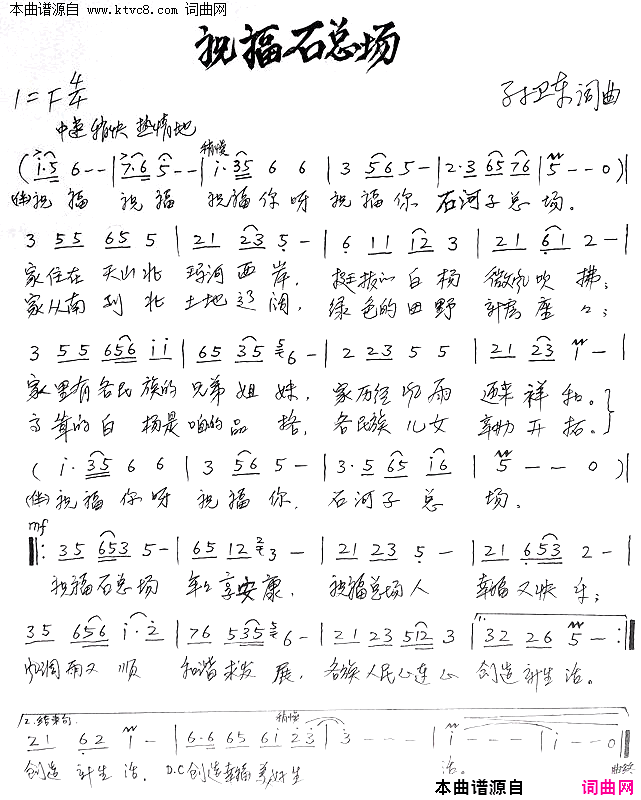 本曲谱源自
www.ktvc8.com 词曲网
祝福石总场
1=F 4/4
孙卫东词曲
中速稍快 热情地
稍慢
(i·5 6 - - | 7·6 5 - - | i·35 6 6 | 3 56 5 - | 2·3 65 76 | 5 - - 0)
(伴)祝福 祝福 祝福你呀 祝福你 石河子总场。
3 55 65 5 | 21 23 5 - | 6 11 12 3 | 21 61 2 - |
家住在天山北玛河西岸，挺拔的白杨微风吹拂；
家从南到北土地辽阔，绿色的田野新房座座；
3 55 656 ii | 65 35 6 - | 2 23 5 5 | 21 23 i - |
家里有各民族的兄弟姐妹，家历经风雨迎来祥和。
高耸的白杨是咱的品格，各民族儿女辛勤开拓。
(i·35 6 6 | 3 56 5 - | 3·5 65 i6 | 5 - - 0)
(伴)祝福你呀 祝福你，石河子总场。
mf
35 653 5 - | 65 12 3 - | 21 23 5 - | 21 653 2 - |
祝福石总场 年年享安康，祝福总场人 幸福又快乐；
35 656 i·2 | 76 535 6 - | 21 23 512 3 | 32 26 5 - :|
风调雨又顺 和谐求发展，各族人民心连心 创造新生活。
1.
2.结束句 稍慢
21 62 i - | 6·6 65 6i 23 | 3 - - - | i - - - | i - - 0 ||
创造新生活。D.C创造幸福美好生活。
本曲谱源自
词曲网